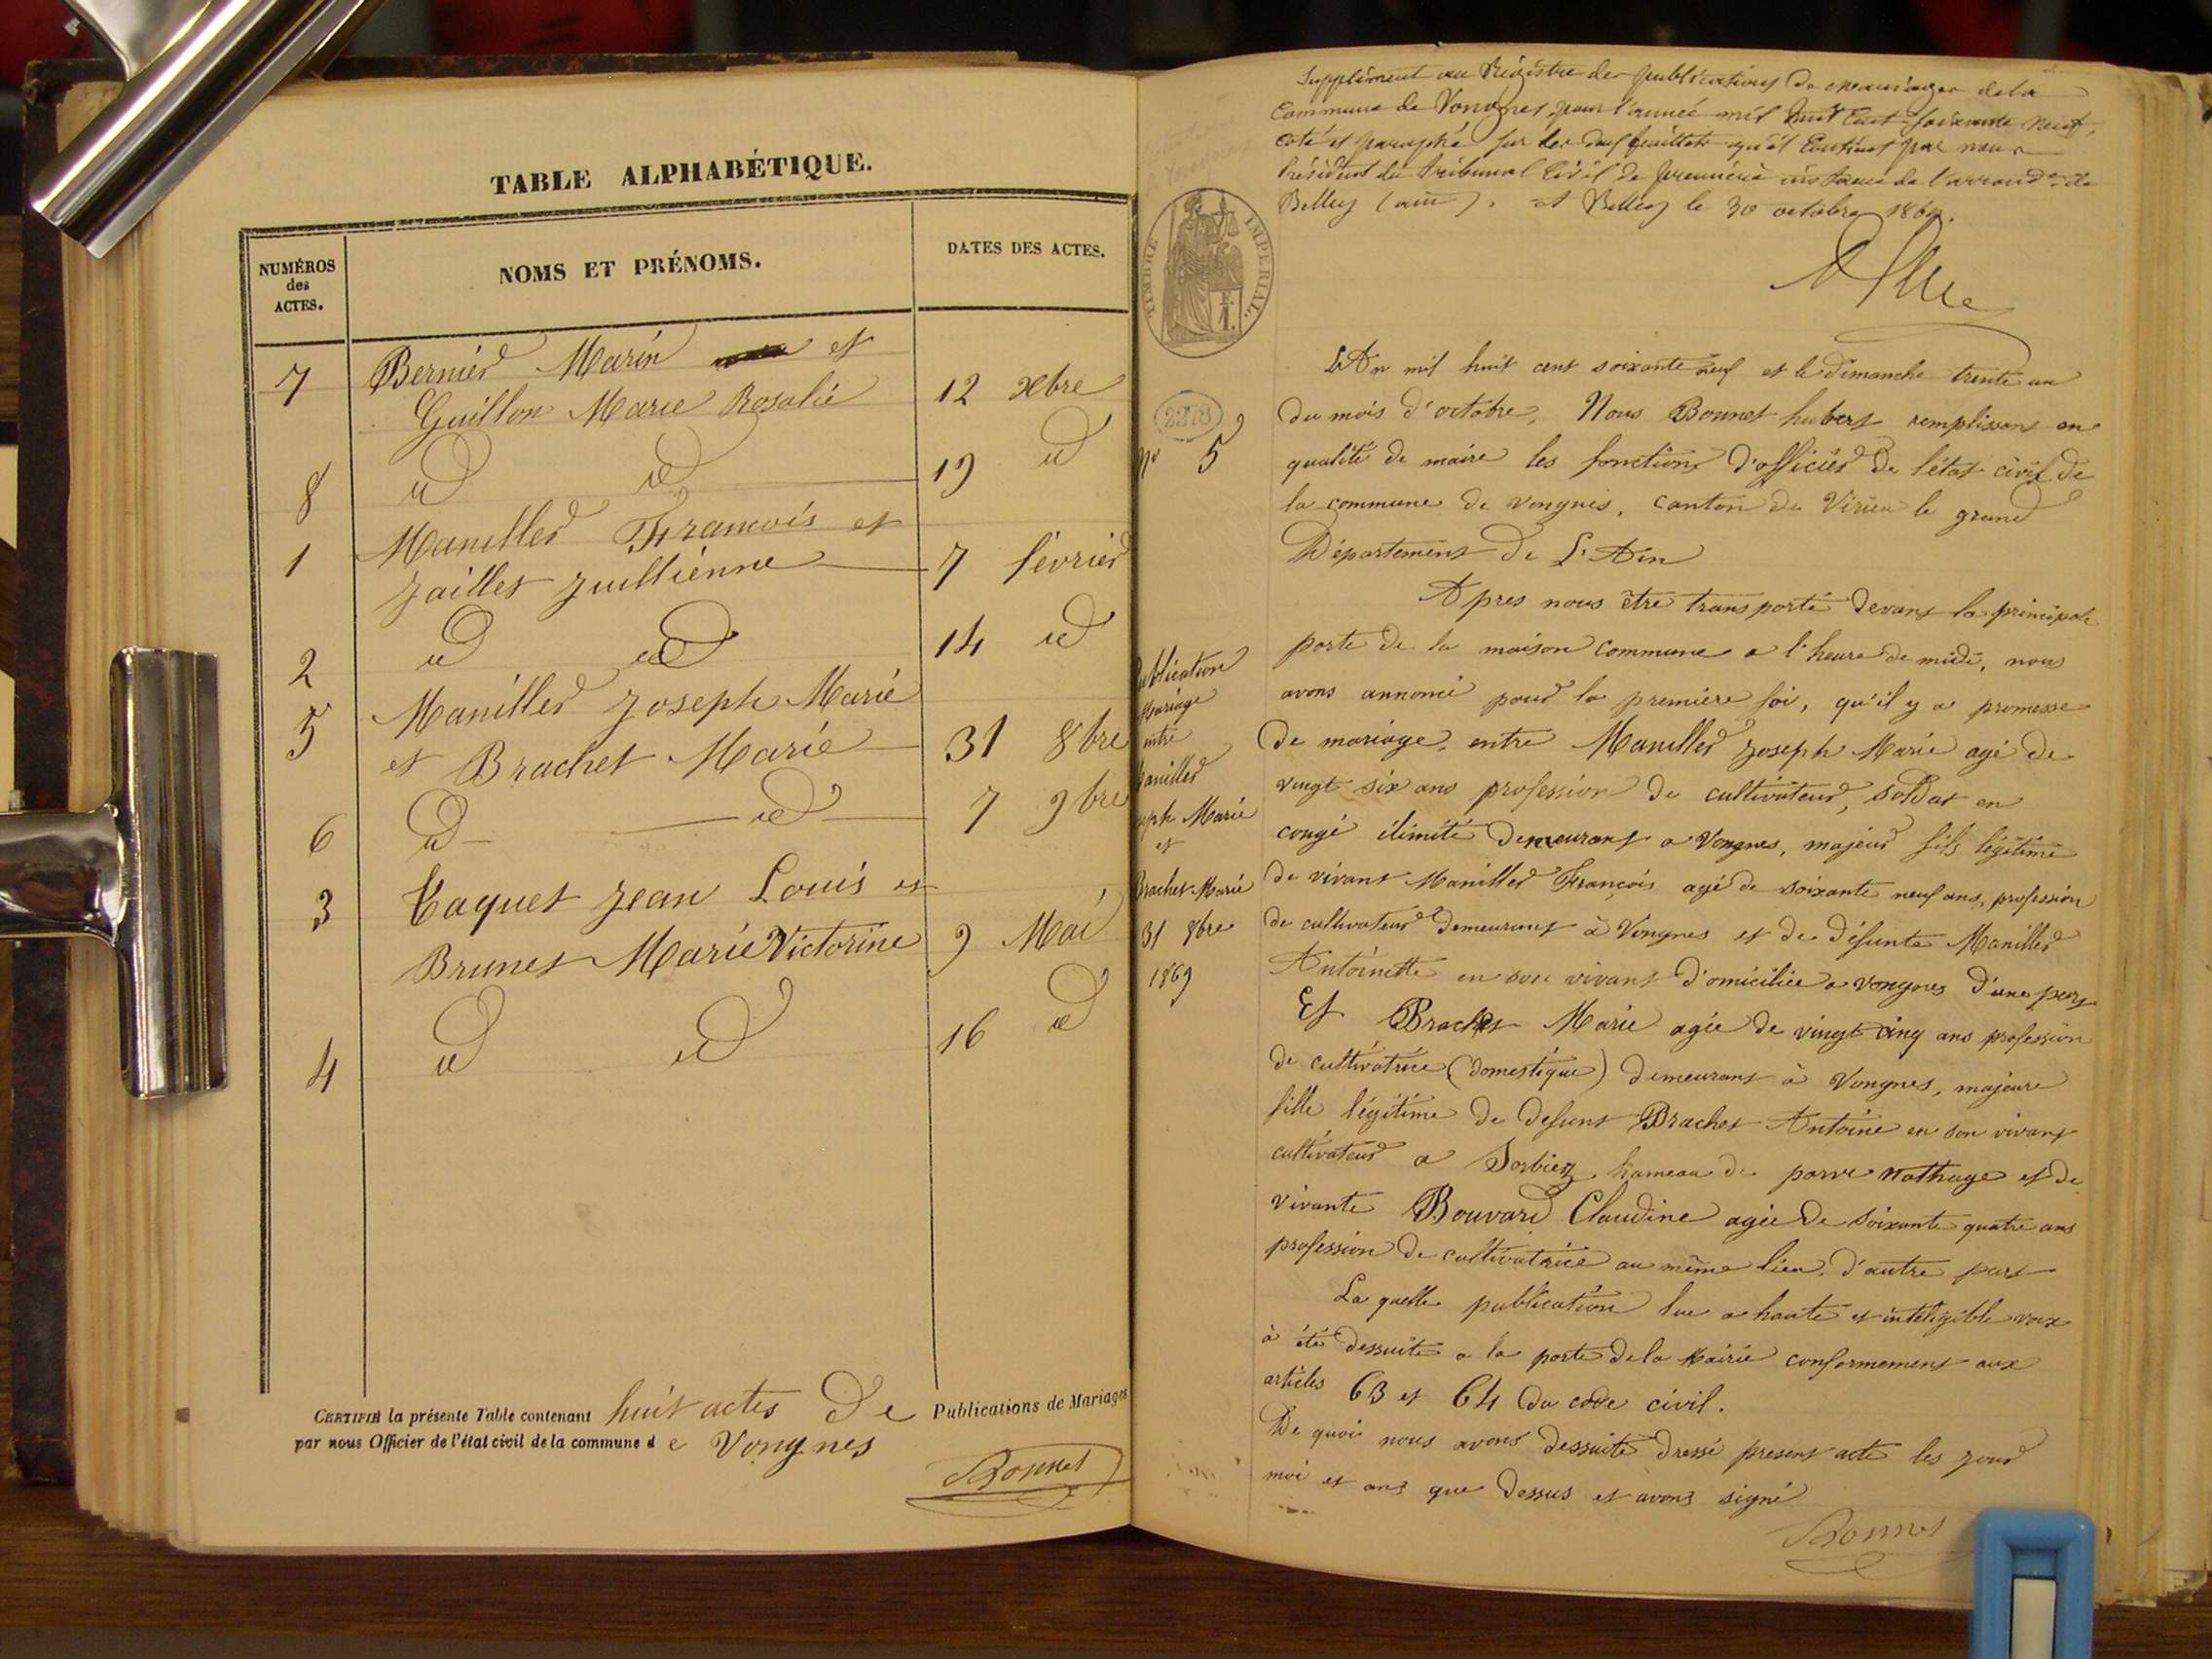 TABLE ALPHABÉTIQUE.
NUMÉROS
des
ACTES.
NOMS ET PRÉNOMS.
DATES DES ACTES.
7 Bernier Marin et
Guillon Marie Rosalie 12 xbre
8 id id 19 id
1 Maniller François et
Jaillet Jullienne 7 février
2 id id 14 id
5 Maniller Joseph Marie
et Brachet Marie 31 8bre
6 id id 7 9bre
3 Taquet Jean Louis et
Brunet Marie Victorine 9 Mai
4 id id 16 id
CERTIFIÉ la présente Table contenant huit actes de Publications de Mariages
par nous Officier de l'état civil de la commune de Vongnes
Bonnet
Supplément au Registre des publications de mariages de la
Commune de Vongnes, pour l'année mil huit Cent soixante neuf,
Coté et paraphé sur les deux feuillets qu'il Contient par nous
Président du Tribunal Civil de première instance de l'arrondt de
Belley (ain). A Belley le 30 octobre 1869.
TIMBRE IMPÉRIAL.
2278
No 5
Publication
Mariage
entre
Maniller
Joseph Marie
et
Brachet Marie
31 8bre
1869
L'An mil huit cent soixante neuf et le dimanche trente un
du mois d'octobre, Nous Bonnet hubert remplissant en
qualité de maire les fonctions d'officier de l'état civil de
la commune de vongnes, canton de Virieu le grand
Département de L'Ain
Apres nous être transporté devant la principale
porte de la maison commune a l'heure de midi, nous
avons annoncé pour la première foi, qu'il y a promesse
de mariage, entre Maniller Joseph Marie agé de
vingt six ans profession de cultivateur, soldat en
congé ilimité demeurant a Vongnes, majeur fils légitime
de vivant Maniller François agé de soixante neuf ans, profession
de cultivateur demeurant à Vongnes et de défunte Maniller
Antoinette en son vivant domiciliée a vongnes d'une part
Et Brachet Marie agée de vingt cinq ans profession
de cultivatrice (domestique) demeurant à Vongnes, majeure
fille légitime de defunt Brachet Antoine en son vivant
cultivateur a Sorbier hameau de et de
vivante Bouvard Claudine agée de soixante quatre ans
profession de cultivatrice au même lieu. d'autre part
La quelle publication lue a haute et inteligible voix
à été dessuite a la porte de la Mairie conformement aux
articles 63 et 64 du code civil.
De quoi nous avons dessuite dressé present acte les jour
moi et ans que dessus et avons signé
Bonnet